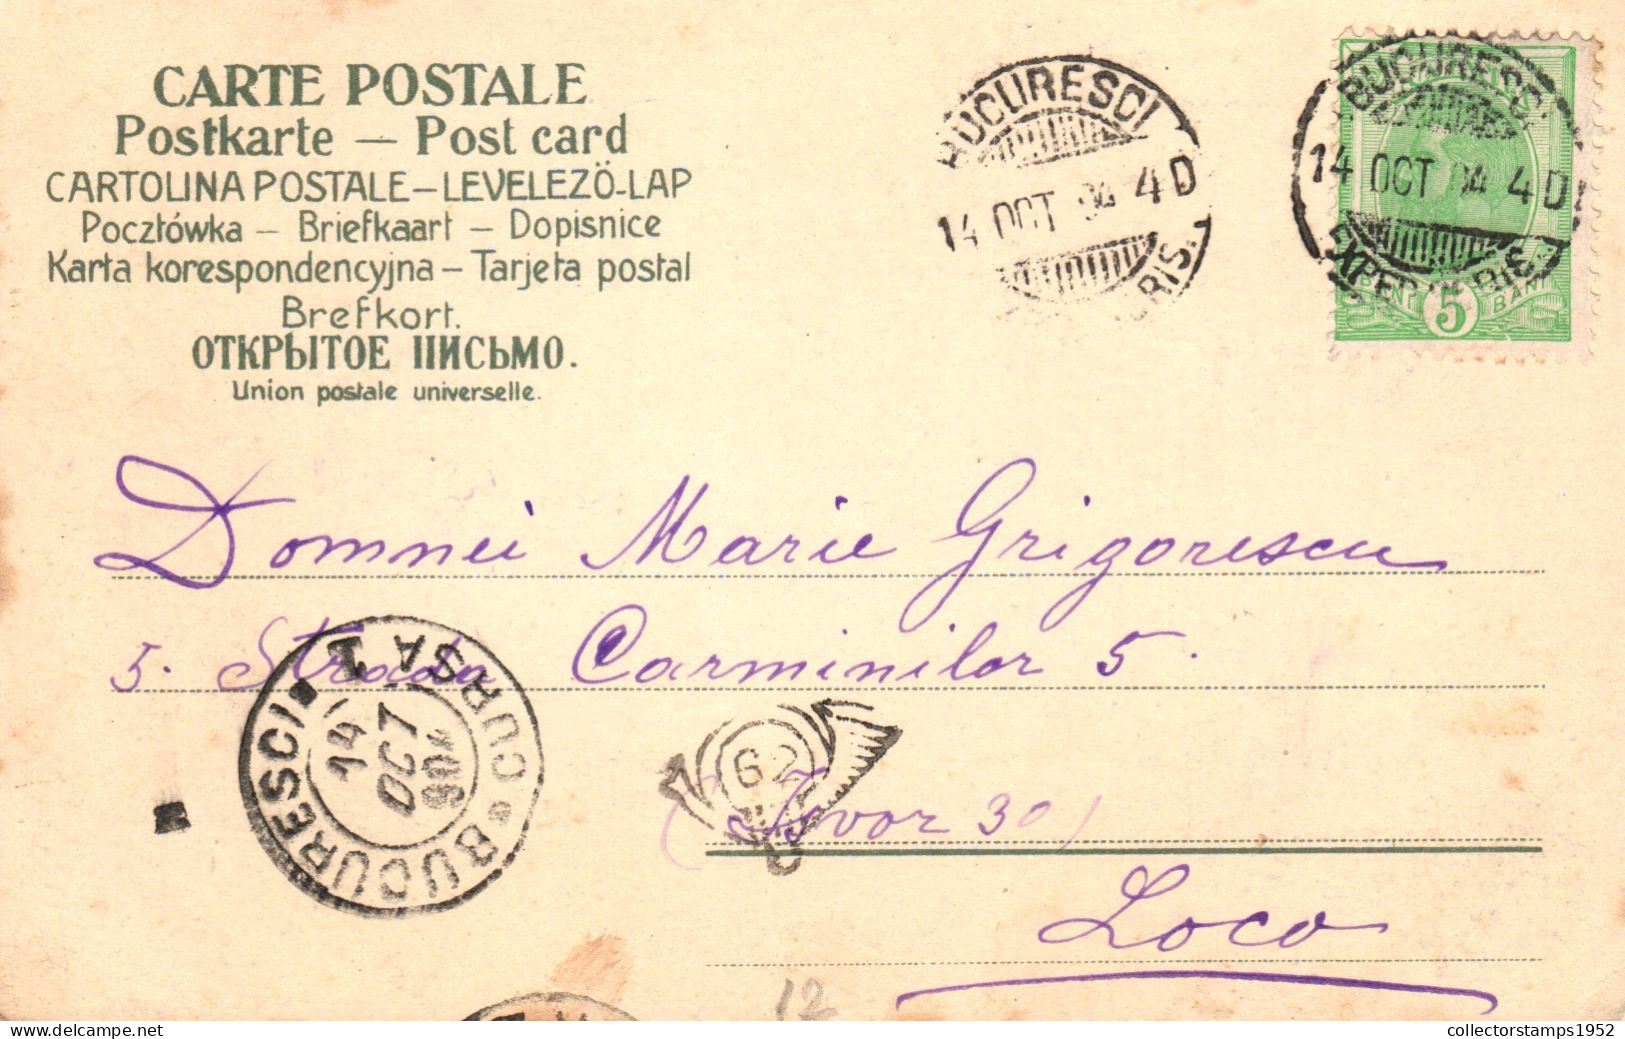 CARTE POSTALE
Postkarte — Post card
CARTOLINA POSTALE – LEVELEZÖ-LAP
Pocztówka – Briefkaart – Dopisnice
Karta korespondencyjna – Tarjeta postal
Brefkort.
ОТКРЫТОЕ ПИСЬМО.
Union postale universelle.
BUCURESCI
14 OCT 04 4 D
BUCURESCI
14 OCT 04 4 D
5 BANI
Domnei Marie Grigorescu
5. Strada Carminilor 5.
BUCURESCI BUCURESCI CURSA 1
14 OCT 904
62
(Isvor 30)
Loco
12
collectorstamps1952